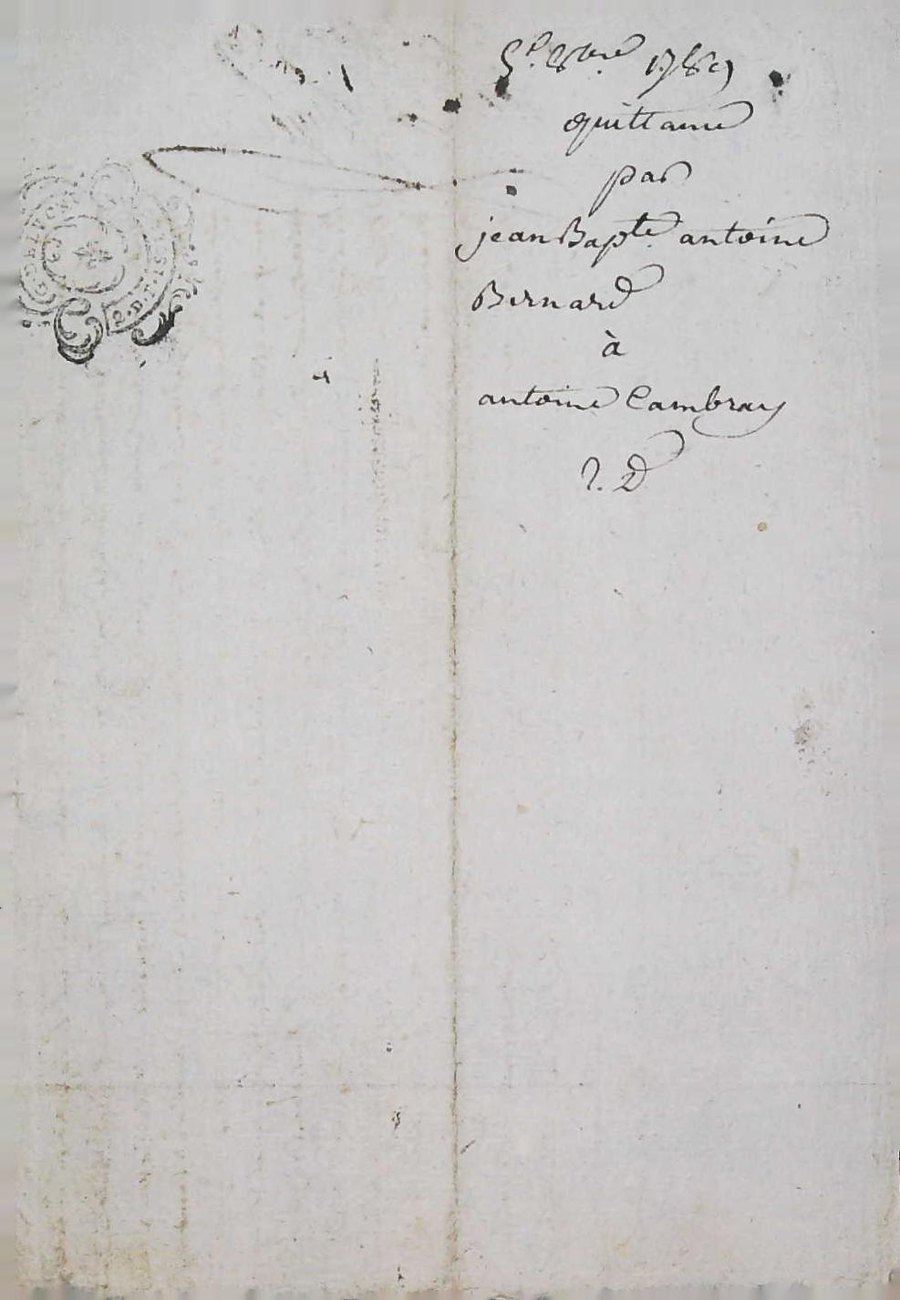 8bre 1789
quittance
par
jean Bapte antoine
Bernard
à
antoine Cambray